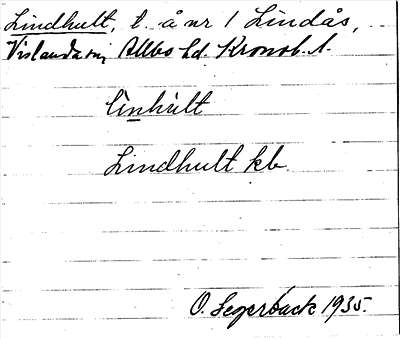 Lindhult, t. å nr 1 Lindås,
Vislanda sn, Allbo hd. Kronob. l.
linhult
Lindhult kb.
O. Segerback 1935.